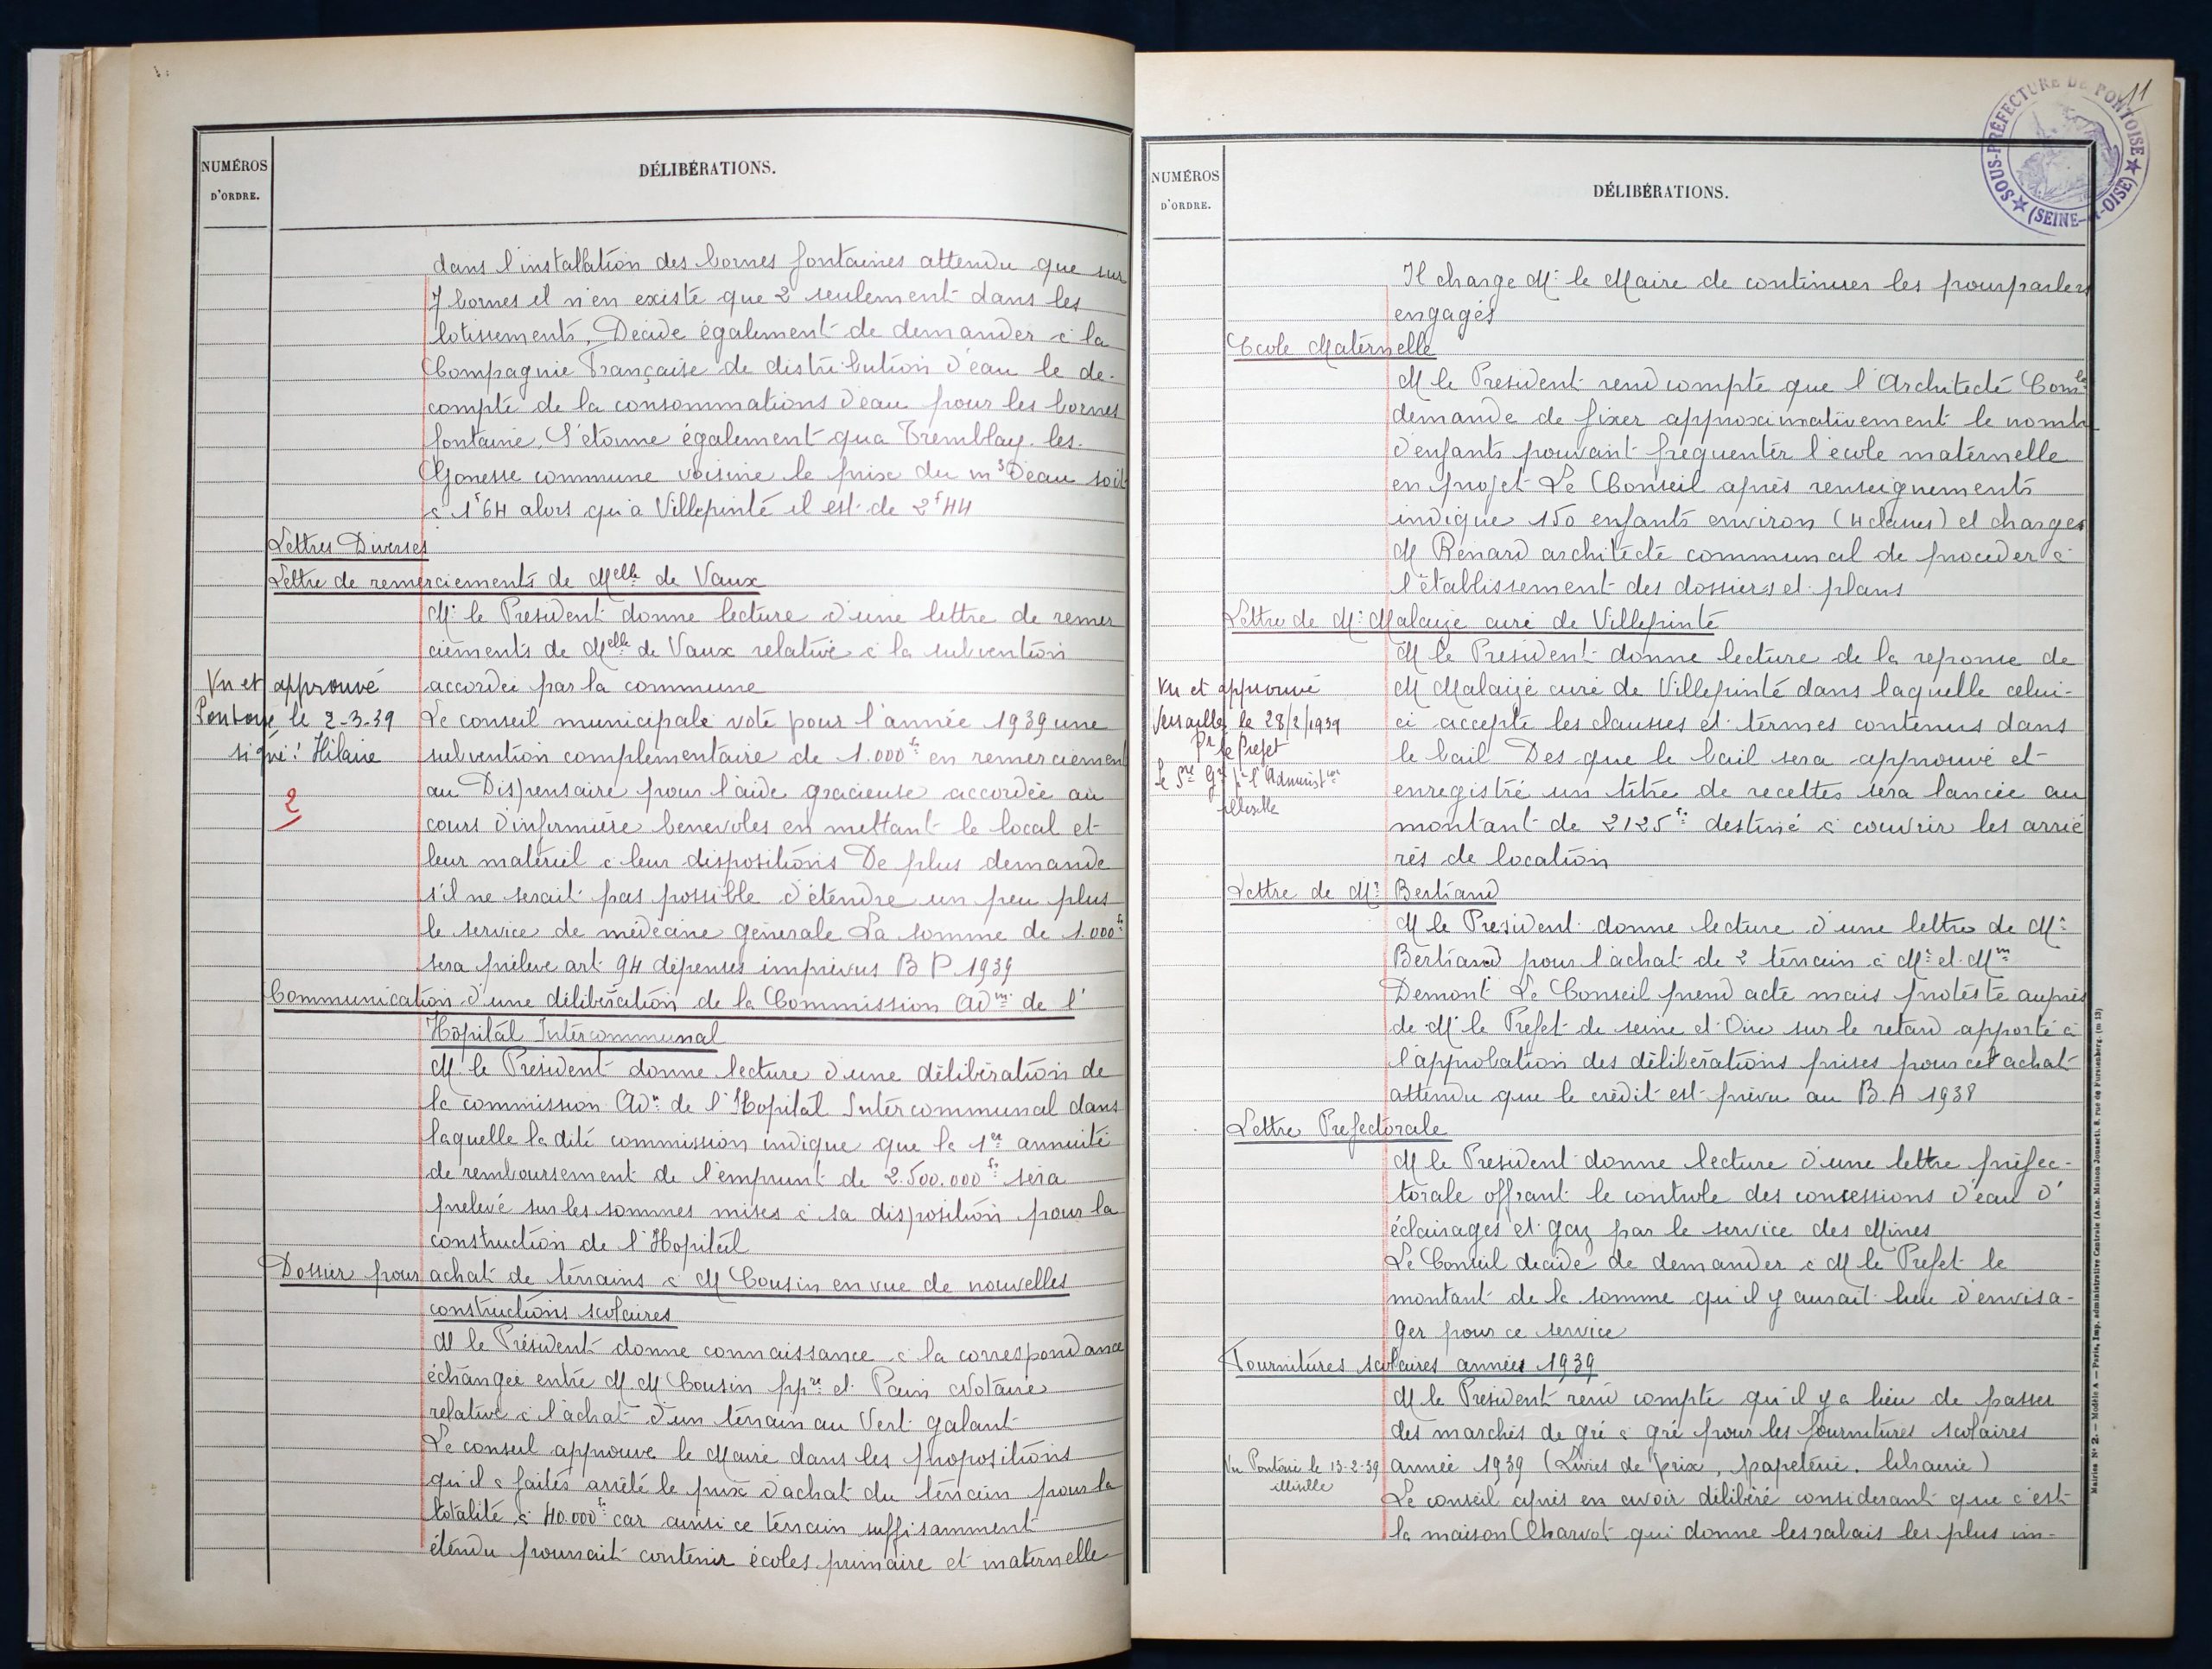 NUMÉROS
D'ORDRE.
DÉLIBÉRATIONS.
dans l'installation des bornes fontaines attendu que sur
7 bornes il n'en existe que 2 seulement dans les
lotissements, Decide également de demander à la
Compagnie Française de distribution d'eau le de-
compte de la consommations d'eau pour les bornes
fontaine, S'etonne également qua Tremblay-les-
Gonesse commune voisine le prix du m3 d'eau soit
à 1f64 alors qu'à Villepinte il est de 2f44
Lettres Diverses
Lettre de remerciements de Melle de Vaux
Mr le President donne lecture d'une lettre de remer
ciements de Melle de Vaux relative à la subvention
accordée par la commune
Vu et approuvé
Pontoise le 2-3-39
signé: Hilaire
2
Le conseil municipale vote pour l'année 1939 une
subvention complementaire de 1.000fr en remerciement
au Dispensaire pour l'aide gracieuse accordée au
cours d'infirmière benevoles en mettant le local et
leur matériel à leur dispositions De plus demande
s'il ne serait pas possible d'étendre un peu plus
le service de médecine générale La somme de 1.000fr
sera préleve art 94 dépenses imprévus B P 1939
Communication d'une délibération de la Commission Adm de l'
Hôpital Intercommunal
M le President donne lecture d'une délibération de
la commission Adn de l'Hopital Intercommunal dans
laquelle la dite commission indique que la 1er annuité
de remboursement de l'emprunt de 2.500.000fr sera
prelevé sur les sommes mises à sa disposition pour la
construction de l'Hopital
Dossier pour achat de terrains à M Cousin en vue de nouvelles
constructions scolaires
M le Président donne connaissance à la correspondance
échangée entre M.M Cousin ppre et Pain Notaire
relative à l'achat d'un terrain au Vert galant
Le conseil approuve le Maire dans les propositions
qu'il a faites arrêté le prix d'achat du terrain pour la
totalité à 40.000fr car ainsi ce terrain suffisamment
étendu pourrait contenir écoles primaire et maternelle
11
SOUS-PRÉFECTURE DE PONTOISE
(SEINE-ET-OISE)
NUMÉROS
D'ORDRE.
DÉLIBÉRATIONS.
Il charge Mr le Maire de continuer les pourparlers
engagés
Ecole Maternelle
M le President rend compte que l'Architecte Comal
demande de fixer approximativement le nombre
d'enfants pouvant frequenter l'école maternelle
en projet Le Conseil après renseignements
indique 150 enfants environ (4 classes) et charges
M Renard architecte communal de proceder à
l'établissement des dossiers et plans
Lettre de Mr Malaizé curé de Villepinte
M le President donne lecture de la reponse de
M Malaizé curé de Villepinte dans laquelle celui-
ci accepte les clauses et termes contenus dans
le bail Des que le bail sera approuvé et
enregistré un titre de recettes sera lancée au
montant de 2125fr destiné à couvrir les arrié
rés de location
Vu et approuvé
Versailles le 28/2/1939
Pr le Prefet
le Sre Gl pr l'Administ
illisible
Lettre de Mr Bertrand
M le President donne lecture d'une lettre de Mr
Bertrand pour l'achat de 2 terrain à Mr et Mm
Demont Le Conseil prend acte mais proteste auprès
de M le Prefet de seine et Oise sur le retard apporté à
l'approbation des délibérations prises pour cet achat
attendu que le crédit est prévu au B.A 1938
Lettre Prefectorale
M le President donne lecture d'une lettre préfec-
torale offrant le controle des concessions d'eau d'
éclairages et gaz par le service des Mines
Le Conseil decide de demander à M le Prefet le
montant de la somme qu'il y aurait lieu d'envisa-
ger pour ce service
Fournitures scolaires années 1939
M le President rend compte qu'il y a lieu de passer
des marchés de gré à gré pour les fournitures scolaires
année 1939 (Livres de prix, papeterie, librairie)
Vu Pontoise le 13-2-39
illisible
Le conseil après en avoir délibéré considerant que c'est
la maison Charvot qui donne les rabais les plus im-
Mairies N° 2. — Modèle A — Paris, Imp. administrative Centrale (Anc. Maison Jousset), 8, rue de Furstenberg. (m 13)